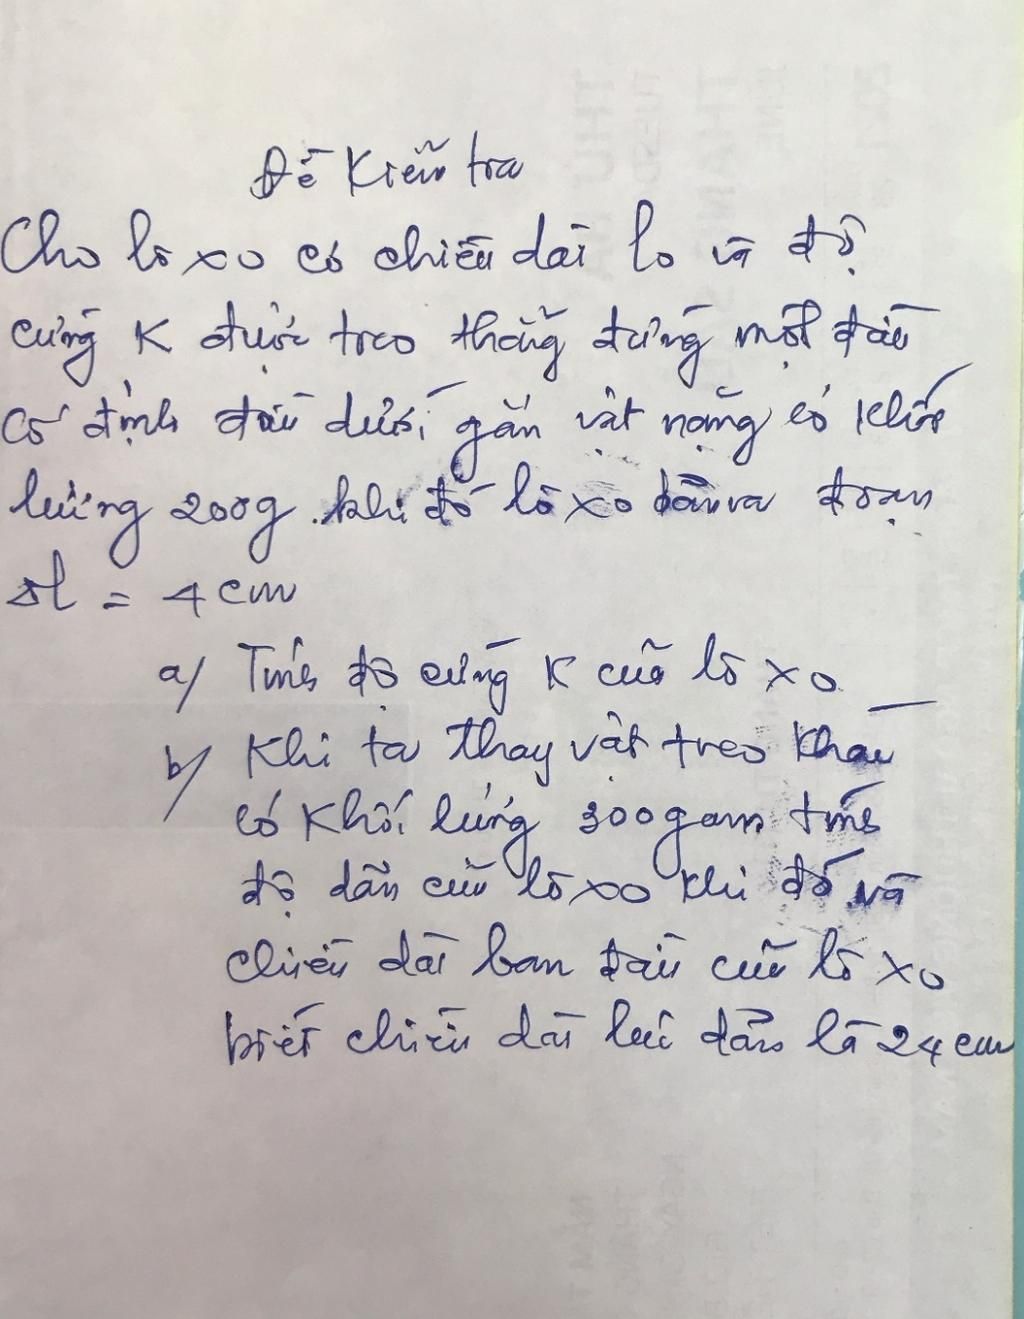 Đề Kiểm tra
Cho lò xo có chiều dài lo và độ
cứng K được treo thẳng đứng một đầu
cố định đầu dưới gắn vật nặng có khối
lượng 200g. khi đó lò xo dãn ra đoạn
Δl = 4 cm
a/ Tính độ cứng K của lò xo.
b/ Khi ta thay vật treo khác
có khối lượng 300gam tính
độ dãn của lò xo khi đó và
chiều dài ban đầu của lò xo
biết chiều dài lúc dãn là 24 cm